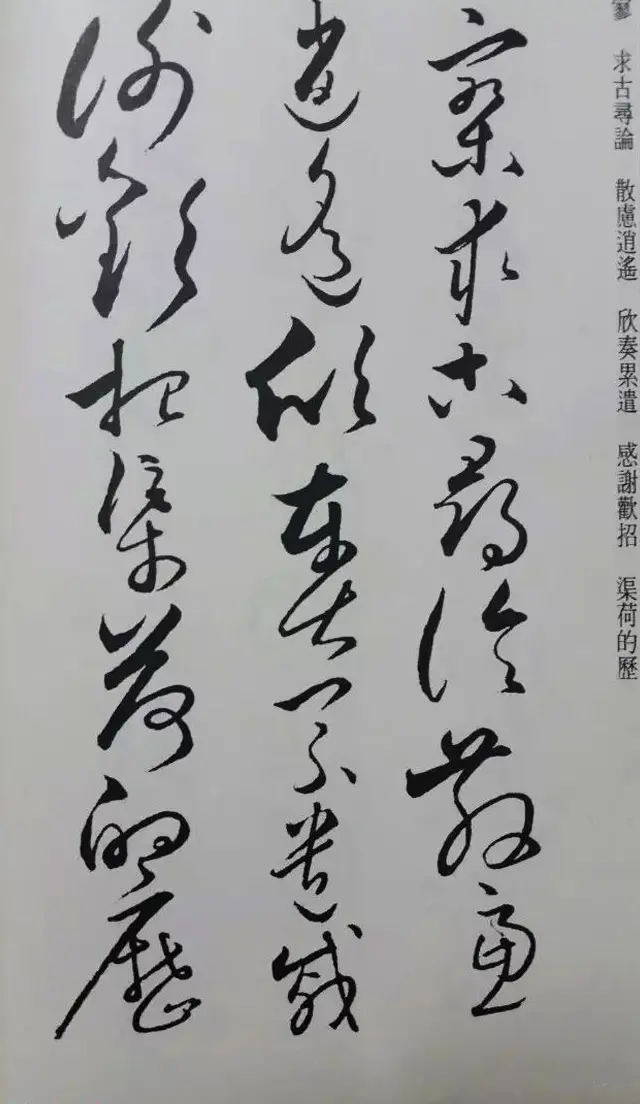 寥 求古尋論 散慮逍遙 欣奏累遣 感謝歡招 渠荷的歷
寥求古尋論散慮
逍遙欣奏累遣感
謝歡招渠荷的歷